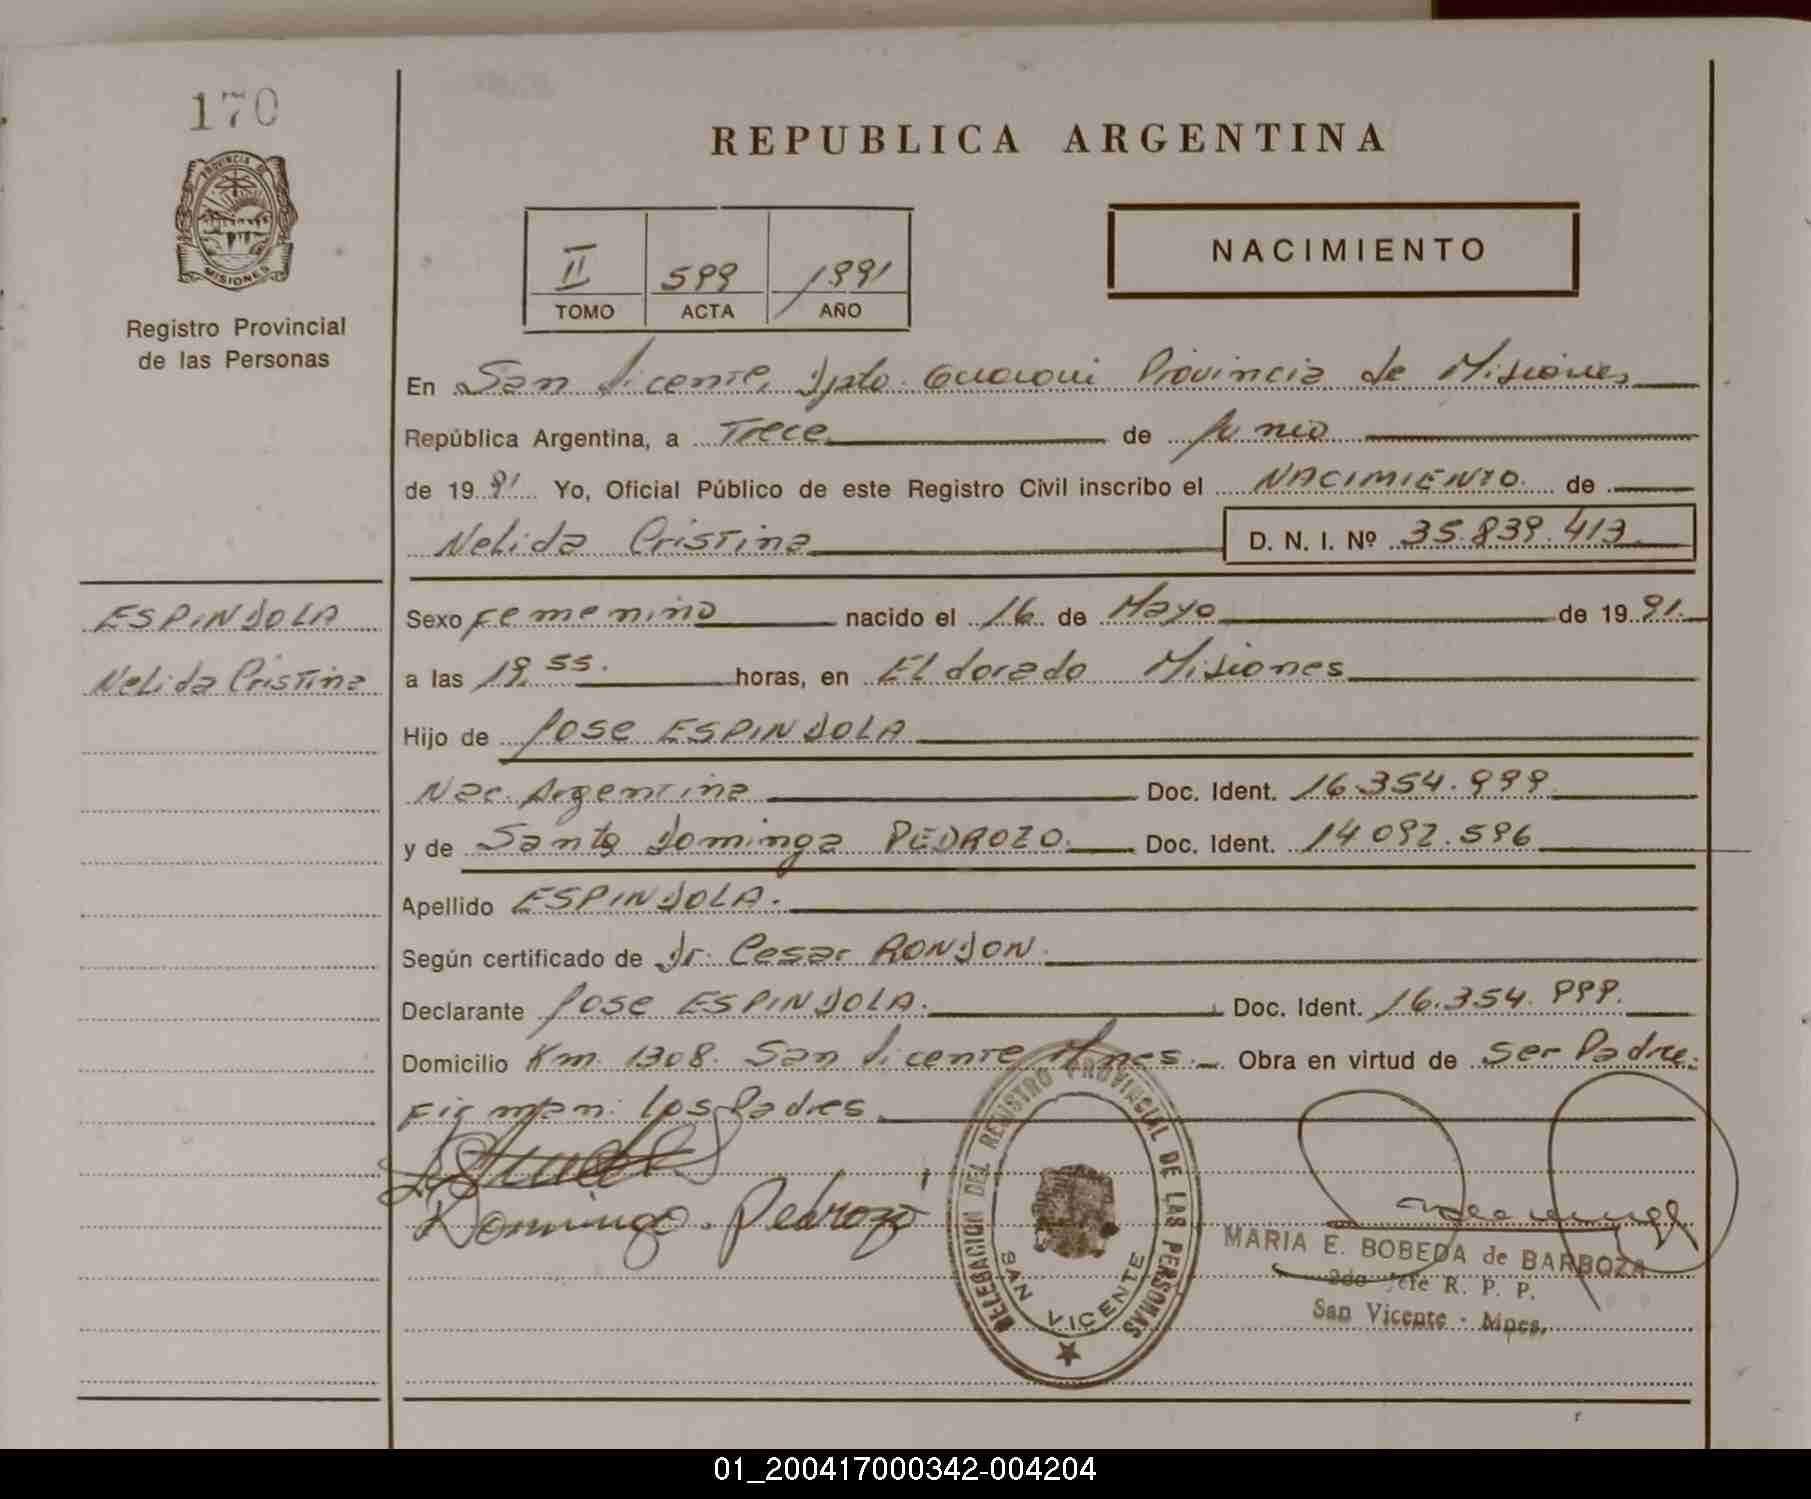 170
PROVINCIA DE
MISIONES
Registro Provincial
de las Personas
REPUBLICA ARGENTINA
II 599 1991
TOMO ACTA AÑO
NACIMIENTO
En San Vicente, Dpto. Guaraní Provincia de Misiones
República Argentina, a Trece de Junio
de 1991 Yo, Oficial Público de este Registro Civil inscribo el NACIMIENTO de
Nelida Cristina D. N. I. Nº 35.839.413
ESPINDOLA
Nelida Cristina
Sexo Femenino nacido el 16 de Mayo de 1991.
a las 19,55. horas, en Eldorado Misiones
Hijo de Jose ESPINDOLA
Nac. Argentina Doc. Ident. 16.354.999
y de Santa Dominga PEDROZO. Doc. Ident. 14.092.596
Apellido ESPINDOLA.
Según certificado de Dr. Cesar RONDON.
Declarante Jose ESPINDOLA. Doc. Ident. 16.354.999.
Domicilio Km. 1308. San Vicente Mnes. Obra en virtud de Ser Padre.
Firman: los Padres
Domingo. Pedrozo
DELEGACION DEL REGISTRO PROVINCIAL DE LAS PERSONAS
SAN VICENTE
MARIA E. BOBEDA de BARBOZA
2do Jefe R. P. P.
San Vicente - Mnes.
01_200417000342-004204